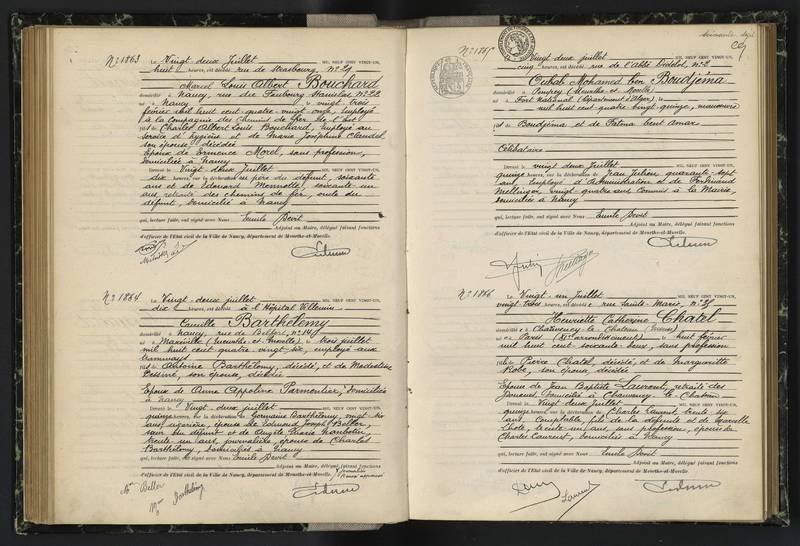 N° 1863
Le Vingt-deux Juillet MIL NEUF CENT VINGT-UN,
huit heures, est décédé rue de Strasbourg, N° 29
Marcel Louis Albert Bouchard
domicilié à Nancy, rue du Faubourg Stanislas N° 22
né à Nancy, le vingt trois
février mil huit cent quatre-vingt onze, employé
à la Compagnie des Chemins de fer de l'Est
fils de Charles Albert Louis Bouchard, employé au
service d'hygiène, et de Marie Joséphine Claudel,
son épouse, décédée
Époux de Ermence Morel, sans profession,
domiciliée à Nancy
Dressé le Vingt-deux Juillet MIL NEUF CENT VINGT-UN,
dix heures, sur la déclaration du père du défunt, soixante
ans et de Édouard soixante un
ans, retraité des chemins de fer, oncle du
défunt, domiciliés à Nancy
qui, lecture faite, ont signé avec Nous Emile Devit
Adjoint au Maire, délégué faisant fonctions
d'officier de l'État civil de la Ville de Nancy, département de Meurthe-et-Moselle.
N° 1864
Le Vingt-deux juillet MIL NEUF CENT VINGT-UN,
dix heures, est décédé à l'Hôpital Villemin
Camille Barthélemy
domicilié à Nancy, rue de Belfort, N° 14
né à Maxéville (Meurthe-et-Moselle) le trois juillet
mil huit cent quatre-vingt-six, employé aux
tramways
fils de Antoine Barthélemy, décédé, et de Modestine
son épouse, décédée
Époux de Anne Appoline Parmentier, domiciliée
à Nancy
Dressé le Vingt-deux juillet MIL NEUF CENT VINGT-UN,
quinze heures, sur la déclaration de Germaine Barthélemy, vingt-six
ans, cigarière, épouse de Edmond Joseph Beller,
sœur du défunt et de Angèle Maria
trente-un ans, journalière, épouse de Charles
Barthélemy, domiciliés à Nancy
qui, lecture faite, ont signé avec Nous Emile Devit
Adjoint au Maire, délégué faisant fonctions
d'officier de l'État civil de la Ville de Nancy, département de Meurthe-et-Moselle.
Mme Beller
Mme Barthélemy
soixante sept
67
N° 1865
Le Vingt deux juillet MIL NEUF CENT VINGT-UN,
cinq heures, est décédé rue de l'Abbé Didelot, N° 2
Oubal Mohamed ben Boudjéma
domicilié à Pompey (Meurthe et Moselle)
né à Fort National (Département d'Alger) le
mil huit cent quatre vingt quinze, manœuvre
fils de Boudjéma et de Fatma bent Amar
Célibataire
Dressé le vingt deux Juillet MIL NEUF CENT VINGT-UN,
quinze heures, sur la déclaration de Jean quarante-sept
ans, Employé d'Administration et de Ferdinand
vingt-quatre ans, Commis à la Mairie,
domiciliés à Nancy
qui, lecture faite, ont signé avec Nous Emile Devit
Adjoint au Maire, délégué faisant fonctions
d'officier de l'État civil de la Ville de Nancy, département de Meurthe-et-Moselle.
N° 1866
Le Vingt-un Juillet MIL NEUF CENT VINGT-UN,
vingt-trois heures, est décédée rue Sainte-Marie, N° 25
Henriette Catherine Chatel
domiciliée à
née à Paris le huit février
mil huit cent soixante-deux, sans profession
fille de Pierre Chatel, décédé, et de Marguerite
son épouse, décédée
Épouse de Jean Baptiste Laurent, retraité des
Dressé le Vingt-deux Juillet MIL NEUF CENT VINGT-UN,
quinze heures, sur la déclaration de Charles Laurent, trente six
ans, Comptable, fils de la défunte et de Marcelle
trente-un ans, sans profession, épouse de
Charles Laurent, domiciliés à Nancy
qui, lecture faite, ont signé avec Nous Emile Devit
Adjoint au Maire, délégué faisant fonctions
d'officier de l'État civil de la Ville de Nancy, département de Meurthe-et-Moselle.
Laurent